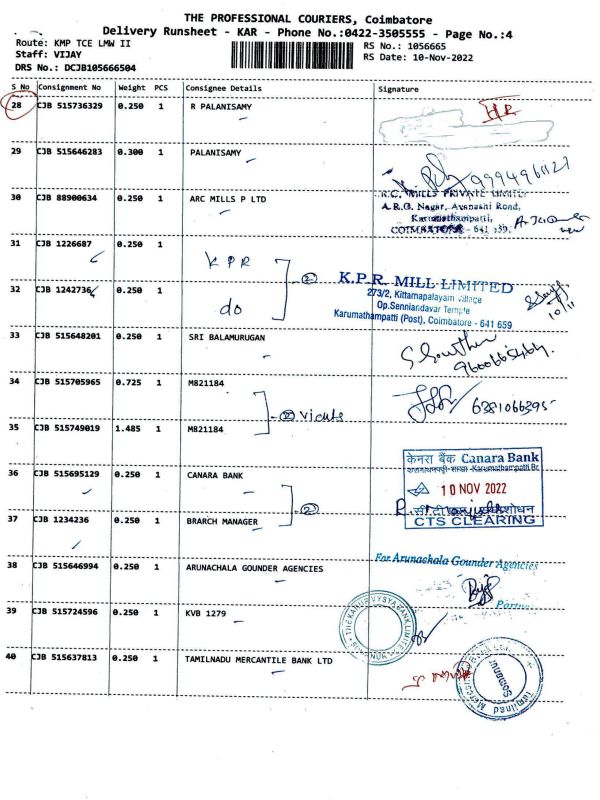 THE PROFESSIONAL COURIERS, Coimbatore
Delivery Runsheet - KAR - Phone No.:0422-3505555 - Page No.:4
Route: KMP TCE LMW II
RS No.: 1056665
Staff: VIJAY
RS Date: 10-Nov-2022
DRS No.: DCJB105666504
S No Consignment No Weight PCS Consignee Details Signature
28 CJB 515736329 0.250 1 R PALANISAMY
29 CJB 515646283 0.300 1 PALANISAMY
30 CJB 88900634 0.250 1 ARC MILLS P LTD
MILLS PRIVATE LIMITED
A.R.G. Nagar, Avanashi Road,
Karumathampatti,
COIMBATORE - 641
31 CJB 1226687 0.250 1 KPR
32 CJB 1242736 0.250 1 do
② K.P.R. MILL LIMITED
273/2, Kittampalayam Village
Op.Senniandavar Temple
Karumathampatti (Post), Coimbatore - 641 659
10/11
33 CJB 515648201 0.250 1 SRI BALAMURUGAN
34 CJB 515705965 0.725 1 M821184
6381066395
35 CJB 515749019 1.485 1 M821184
36 CJB 515695129 0.250 1 CANARA BANK
37 CJB 1234236 0.250 1 BRARCH MANAGER
②
केनरा बैंक Canara Bank
10 NOV 2022
CTS CLEARING
38 CJB 515646994 0.250 1 ARUNACHALA GOUNDER AGENCIES
For Arunachala Gounder Agencies
Partner
39 CJB 515724596 0.250 1 KVB 1279
40 CJB 515637813 0.250 1 TAMILNADU MERCANTILE BANK LTD